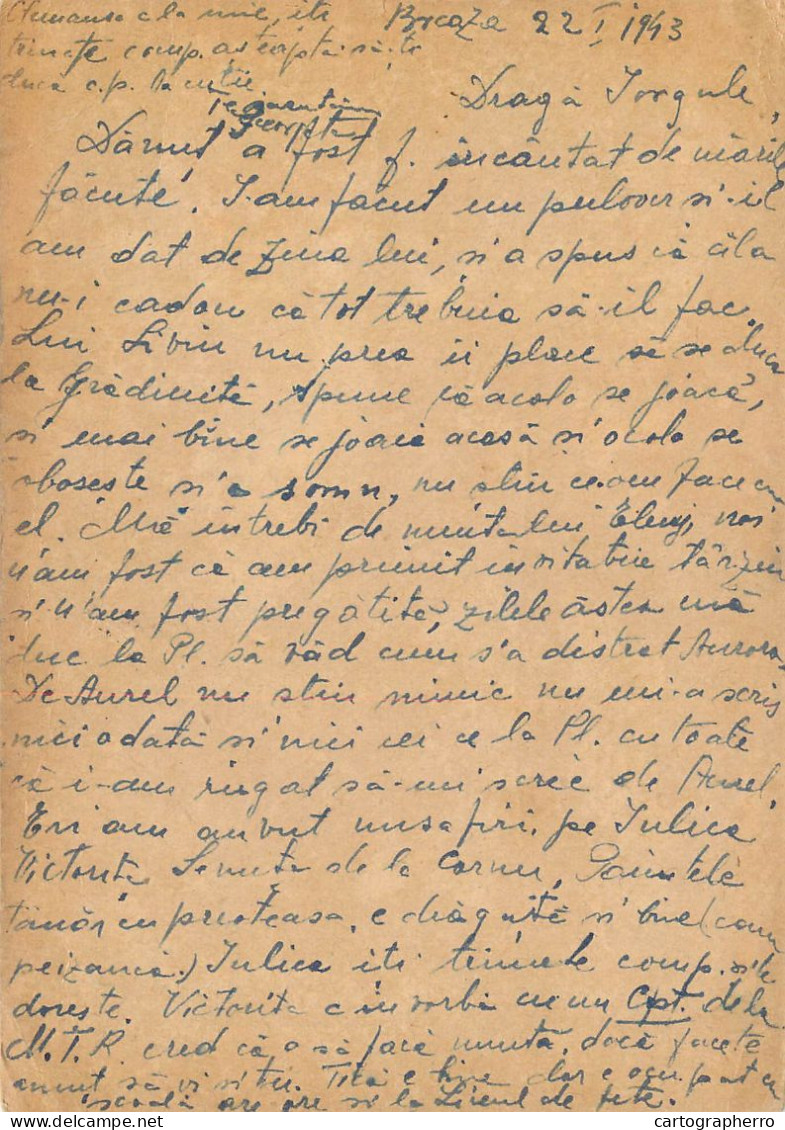 e la mine, iti
Breaza 22 I 1943
trimete comp. asteptai să-ti
duca c.p. la cutie
Te sarutăm
Dragă Iorgule,
Dănuț a fost f. încântat de
făcute. I-am făcut un pulover si-il
am dat de ziua lui, si a spus că ăla
nu-i cadou că tot trebuia să-il fac.
Lui Liviu nu prea ii place să se duca
la grădinită, spune că acolo se joacă,
si mai bine se joacă acasă si acolo se
oboseste si a somn, nu stiu ce om face cu
el. Mă intrebi de nunta lui noi
n'am fost că am primit invitatie târziu
si n'am fost pregătită, zilele astea mă
duc la Pl. să văd cum s'a distrat Aurora.
De Aurel nu stiu nimic nu mi-a scris
nici odată si nici cei de la Pl. cu toate
că i-am rugat să-mi scrie de Aurel.
Eri am avut musafiri. pe Iulica
Victorita Lenuta de la Cornu, Părintele
tânăr cu preoteasa, e drăgută si bine (cam
) Iulica iti trimete comp. si te
doreste. Victorita e in vorbă cu un Cpt. de la
M.T.R. cred că o să facă nuntă, dacă facete
anunt să vi si tu. Tică e bine dar e ocupat cu
scoală are ore si la Liceul de fete.
cartographerro
delcampe.net